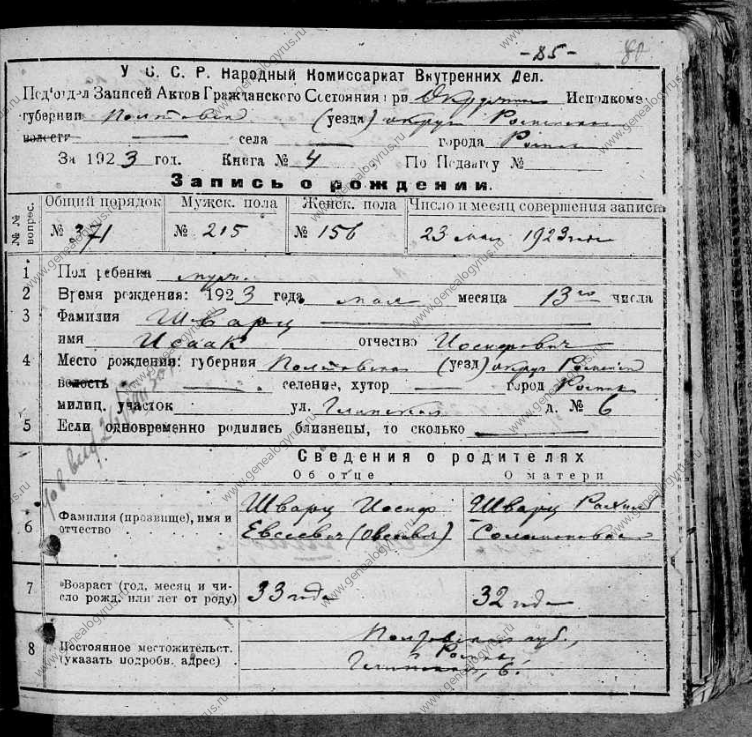 -85-
У С. С. Р. Народный Комиссариат Внутренних Дел.
Подотдел Записей Актов Гражданского Состояния при Окружном Исполкоме
губернии Полтовской (уезд) округ Роменский
волости — села — города Ромны
За 1923 год. Книга № 4 По Подзагсу №
Запись о рождении.
№№ вопрос. Общий порядок Мужск. пола Женск. пола Число и месяц совершения записи
№ 371 № 215 № 156 23 мая 1923 года
1 Пол ребенка муж.
2 Время рождения: 1923 года мая месяца 13го числа
3 Фамилия Шварц
имя Исаак отчество Иосифович
4 Место рождения: губерния Полтовская (уезд) округ Роменский
волость — селение, хутор — город Ромны
милиц. участок ул. Глинская д. № 6
5 Если одновременно родились близнецы, то сколько —
Сведения о родителях
Об отце О матери
6 Фамилия (прозвище), имя и отчество
Шварц Иосиф Шварц
Евсеевич (Овсеевич) Соломоновна
7 Возраст (год, месяц и число рожд. или лет от роду.) 33 года 32 года
8 Постоянное местожительст. (указать подробн. адрес)
Полтовская губ.,
г. Ромны
Глинская, 6.
www.genealogyrus.ru